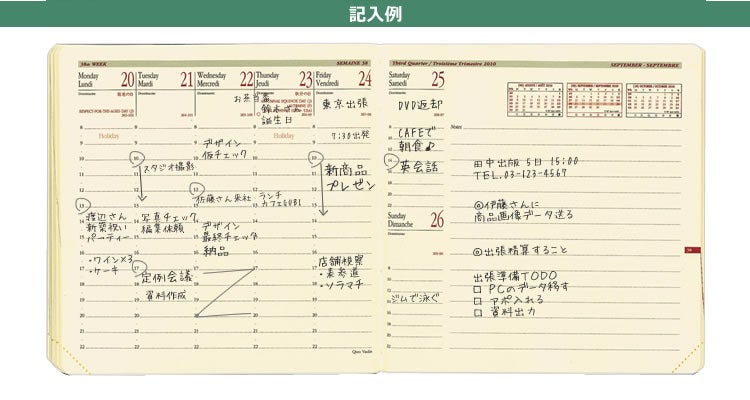 記入例
38th WEEK
SEMAINE 38
Monday
Lundi
20
Tuesday
Mardi
21
Wednesday
Mercredi
22
Thursday
Jeudi
23
Friday
Vendredi
24
Dominante
敬老の日
RESPECT-FOR-THE-AGED DAY (J)
Holiday
渡辺さん
新築祝い
パーティー
・ワイン×3
・ケーキ
スタジオ撮影
写真チェック
編集依頼
定例会議
資料作成
お弁当
デザイン
仮チェック
佐藤さん来社
デザイン
最終チェック
納品
誕生日
Holiday
ランチ
東京出張
7:30出発
新商品
プレゼン
店舗視察
・表参道
・ソラマチ
Quo Vadis
Third Quarter / Troisième Trimestre 2010
SEPTEMBER - SEPTEMBRE
Saturday
Samedi
25
Dominante
DVD返却
CAFEで
朝食♪
英会話
Sunday
Dimanche
26
Dominante
ジムで泳ぐ
Notes
田中出版 5日 15:00
TEL.03-123-4567
@伊藤さんに
商品画像データ送る
@出張精算すること
出張準備TODO
□ PCのデータ移す
□ アポ入れる
□ 資料出力